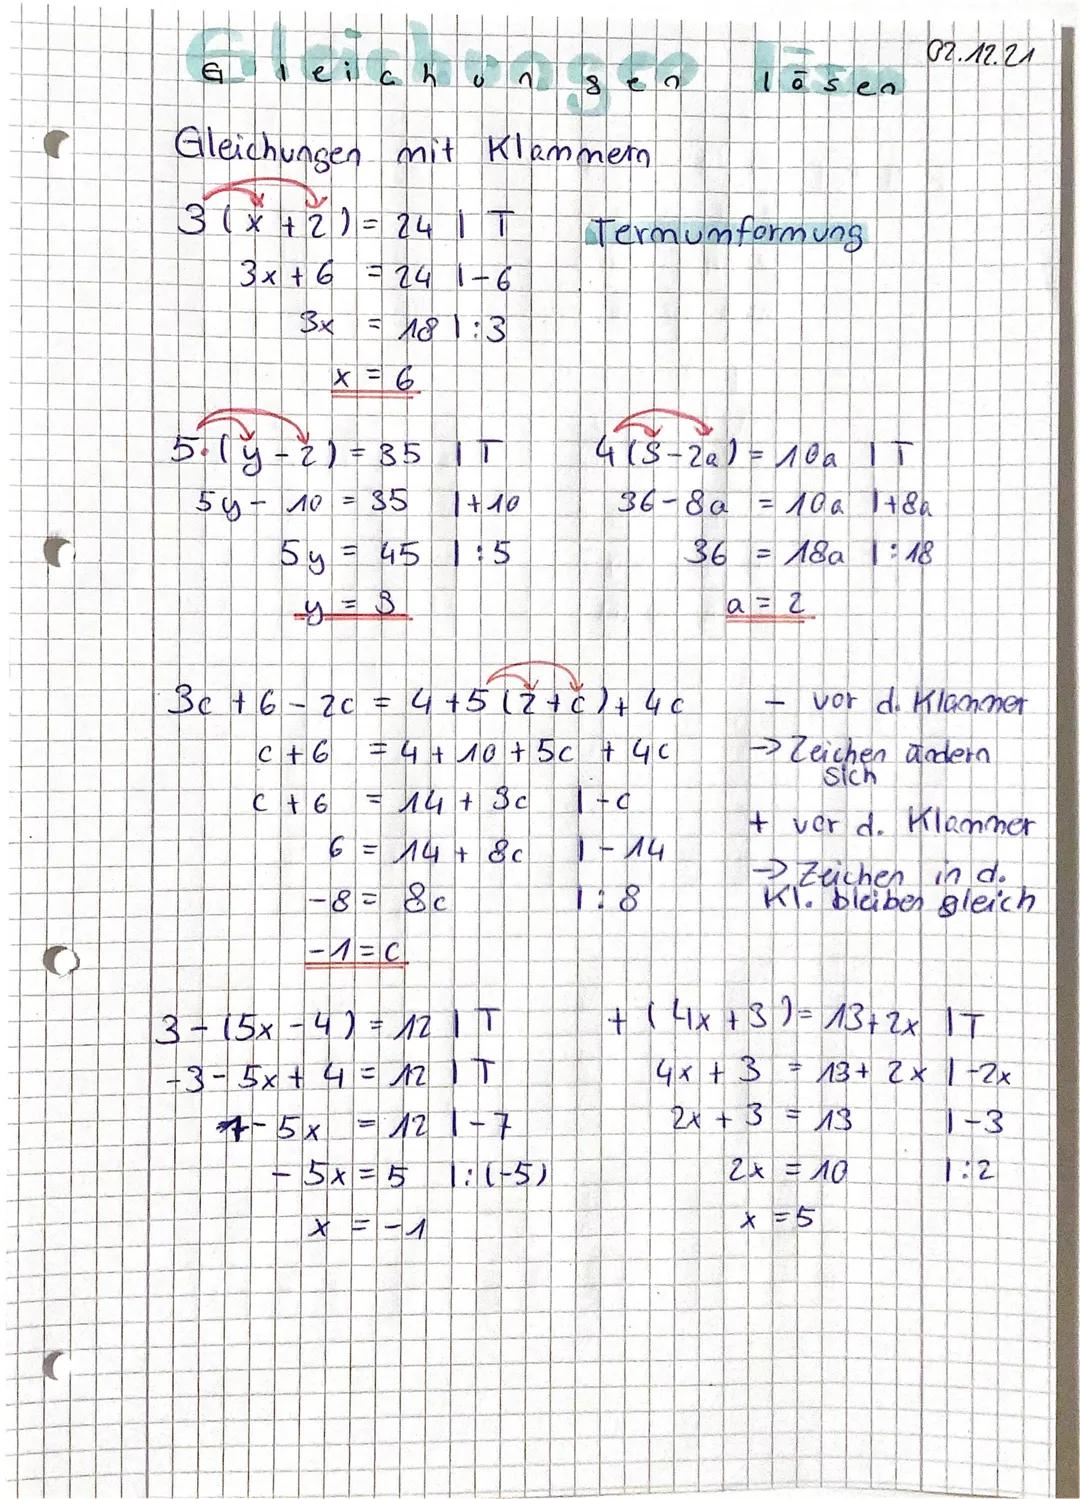 02.12.21
Gleichungen lösen
Gleichungen mit Klammern
3(x+2) = 24 | T
Termumformung
3x + 6 = 24 | -6
3x = 18 | :3
x = 6
5·(y-2) = 35 | T
5y - 10 = 35 | +10
5y = 45 | :5
y = 9
4(9-2a) = 10a | T
36-8a = 10a | +8a
36 = 18a | :18
a = 2
3c + 6 - 2c = 4 + 5(2+c) + 4c
c + 6 = 4 + 10 + 5c + 4c
c + 6 = 14 + 9c | -c
6 = 14 + 8c | -14
-8 = 8c | :8
-1 = c
- vor d. Klammer
-> Zeichen ändern
sich
+ vor d. Klammer
-> Zeichen in d.
Kl. bleiben gleich
3 - (5x - 4) = 12 | T
-3 - 5x + 4 = 12 | T
7 - 5x = 12 | -7
- 5x = 5 | :(-5)
x = -1
+ (4x + 3) = 13 + 2x | T
4x + 3 = 13 + 2x | -2x
2x + 3 = 13 | -3
2x = 10 | :2
x = 5